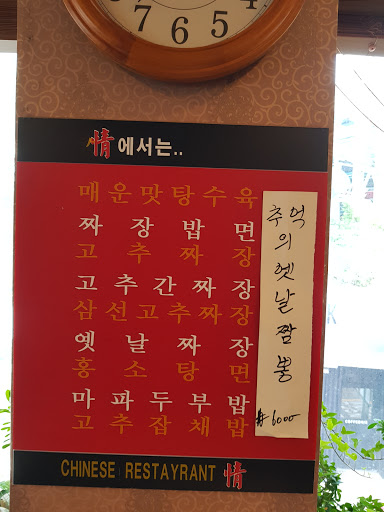 4
7 6 5
情에서는..
매운맛탕수육
짜장밥면
고추짜장
고추간짜장
삼선고추짜장
옛날짜장
홍소탕면
마파두부밥
고추잡채밥
추억의옛날짬뽕
₩6000
CHINESE RESTAYRANT 情